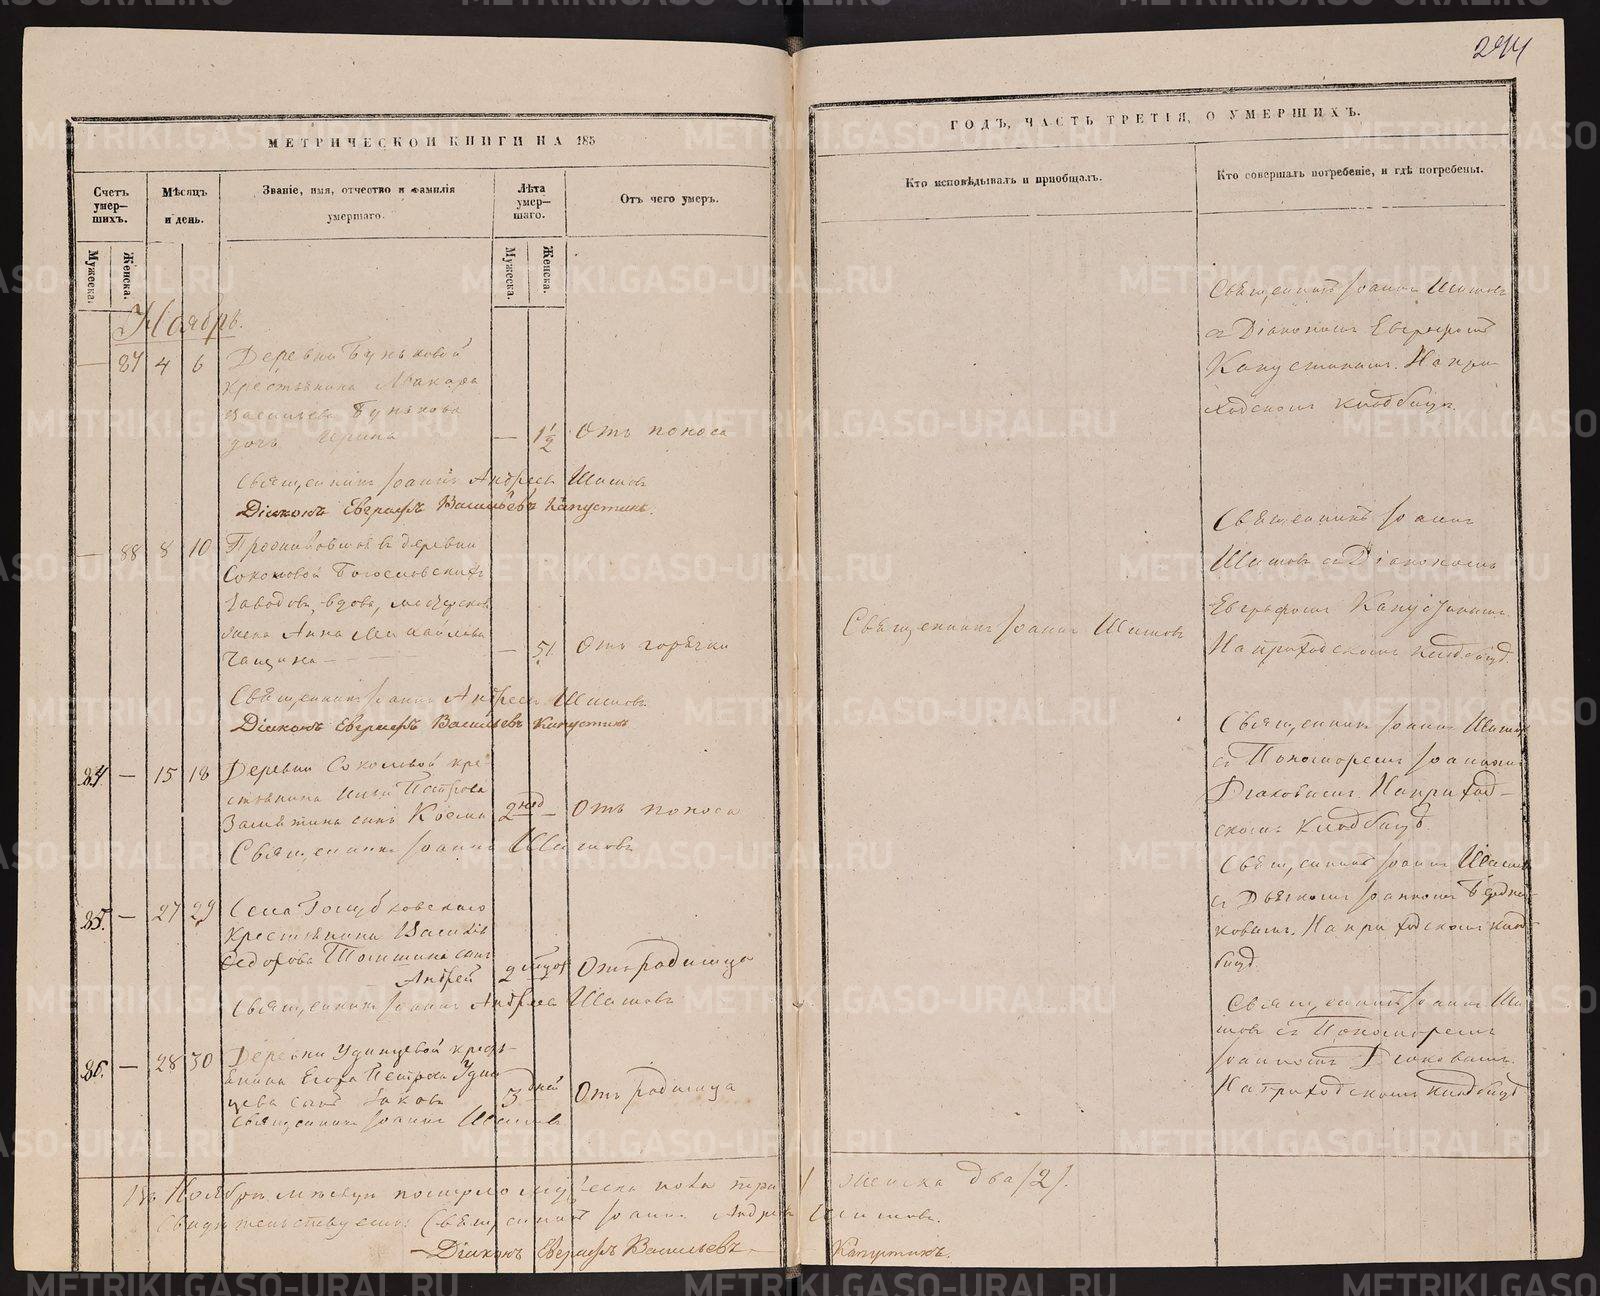 244
МЕТРИЧЕСКОЙ КНИГИ НА 185
ГОДЪ, ЧАСТЬ ТРЕТІЯ, О УМЕРШИХЪ.
Счетъ умер-шихъ.
Мѣсяцъ и день.
Званіе, имя, отчество и фамилія умершаго.
Лѣта умер-шаго.
Отъ чего умеръ.
Кто исповѣдывалъ и пріобщалъ.
Кто совершалъ погребеніе, и гдѣ погребены.
Мужеска.
Женска.
Мужеска.
Женска.
Ноябрь.
— 87 4 6 Деревни Буньковой
крестьянина Макара
Васильева Бунькова
дочь Ирина — 1 1/2 Отъ поноса
Священникъ Іоаннъ Шишовъ
съ Діакономъ Евграфомъ
Капустинымъ. На при-
ходскомъ кладбищѣ
Священникъ Іоаннъ Андреевъ Шишовъ
Діаконъ Евграфъ Васильевъ Капустинъ.
— 88 8 10 Проживавшая въ деревни
Соколовой Богословскихъ
Заводовъ, вдова, мастерская
жена Анна Михайлова
— 51 Отъ горячки
Священникъ Іоаннъ Шишовъ
Священникъ Іоаннъ
Шишовъ съ Діакономъ
Евграфомъ Капустинымъ
На приходскомъ кладбищѣ.
Священникъ Іоаннъ Андреевъ Шишовъ.
Діаконъ Евграфъ Васильевъ Капустинъ
84. — 15 18 Деревни Соколовой кре
стьянина Ильи Петрова
Замятина сынъ Косма 2 нед — Отъ поноса
Священникъ Іоаннъ Шишовъ
Священникъ Іоаннъ Шишовъ
съ Пономоремъ Іоанномъ
На приход-
скомъ кладбищѣ
85. — 27 29 Села Голубковскаго
крестьянина Василія
Федорова Топтина сынъ
Андрей Отъ родимца
Священникъ Іоаннъ Андреевъ Шишовъ
Священникъ Іоаннъ Шишовъ
съ Дьячкомъ Іоанномъ
На приходскомъ клад-
бищѣ.
86. — 28 30 Деревни Удинцевой кресть-
янина Егора Петрова Удин
цева сынъ Іаковъ 3 дней Отъ родимца
Священникъ Іоаннъ Шишовъ
Священникъ Іоаннъ Ши
шовъ съ Пономоремъ
Іоанномъ
На приходскомъ кладбищѣ
Въ Ноябрѣ мѣсяцѣ померло мужеска пола три женска два /2/.
Свидѣтельствуемъ: Священникъ Іоаннъ Андреевъ Шишовъ.
Діаконъ Евграфъ Васильевъ Капустинъ.
METRIKI.GASO-URAL.RU